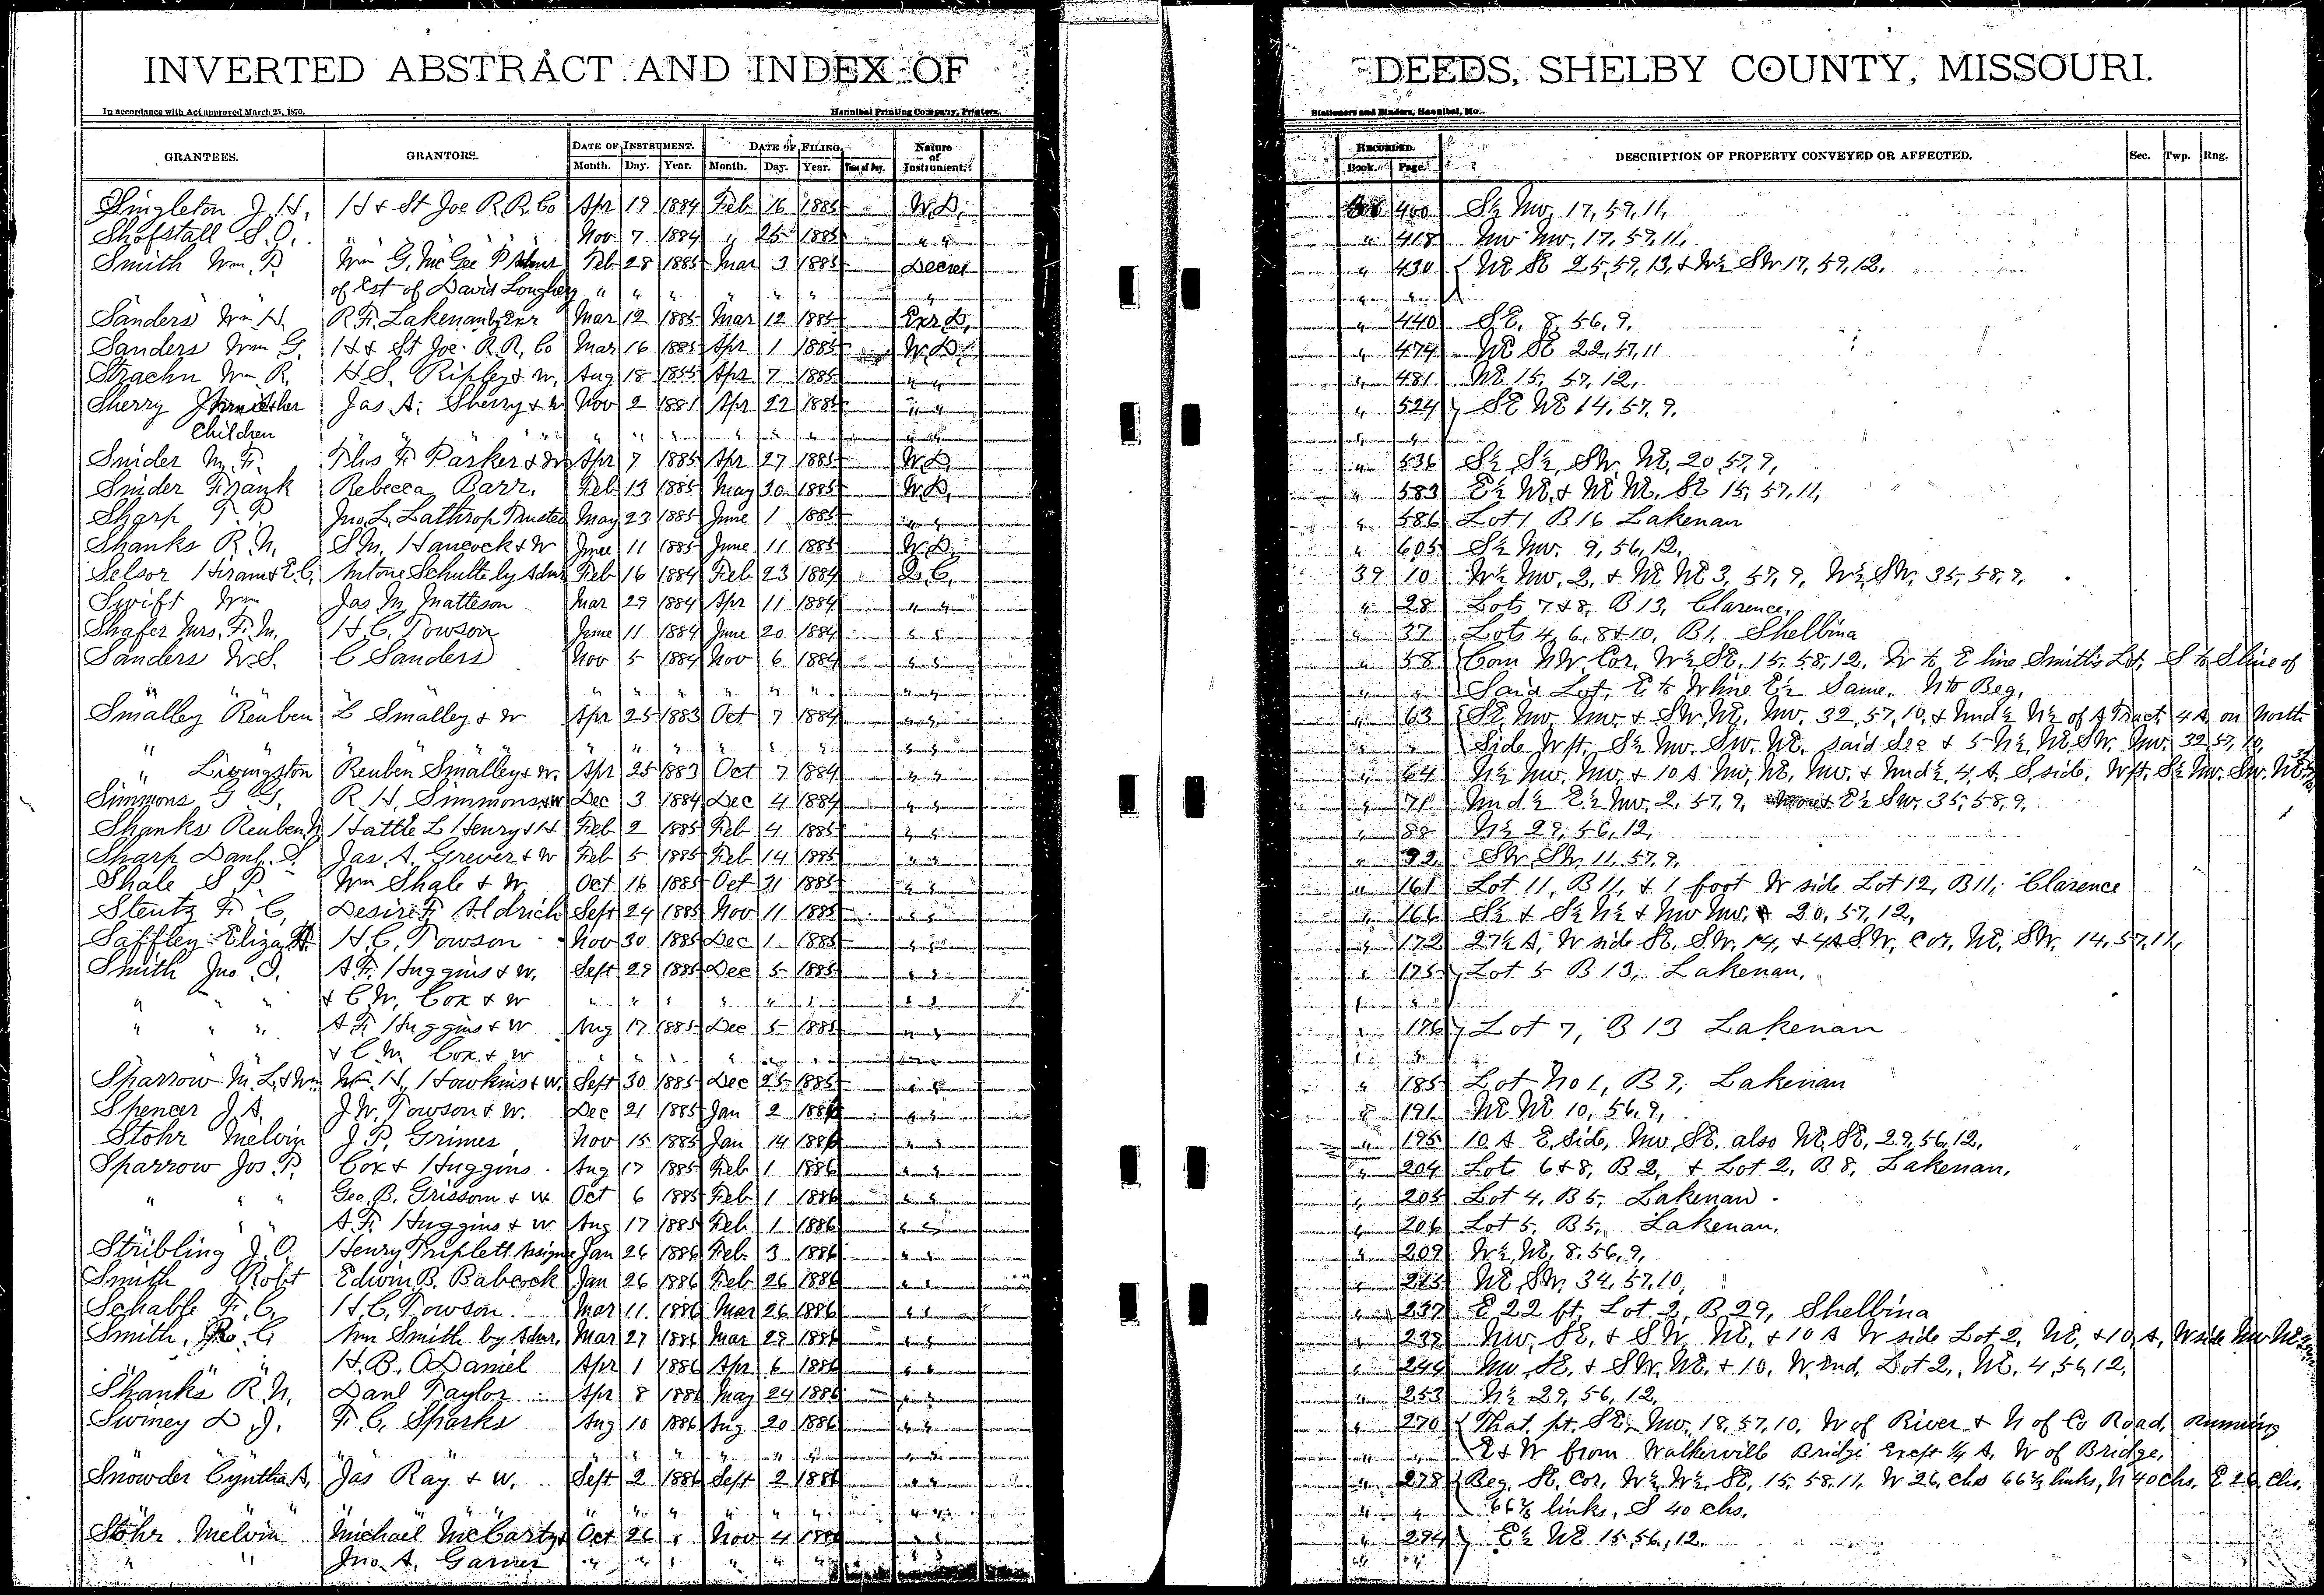 INVERTED ABSTRACT AND INDEX OF DEEDS, SHELBY COUNTY, MISSOURI.
In accordance with Act approved March 25, 1870. Hannibal Printing Company, Printers, Stationers and Binders, Hannibal, Mo.
GRANTEES. GRANTORS. DATE OF INSTRUMENT. DATE OF FILING. Nature of Instrument. RECORDED. DESCRIPTION OF PROPERTY CONVEYED OR AFFECTED. Sec. Twp. Rng.
Month. Day. Year. Month. Day. Year. Time of Day. Book. Page.
Singleton J. H. H & St Joe R.R. Co Apr 19 1884 Feb 16 1885 W.D. 400 S½ NW, 17, 59, 11,
Shofstall S. O. " " " " " Nov 7 1884 " 25 1885 " " " 418 NW NW, 17, 59, 11,
Smith Wm. P. Wm G. McGee P Admr Feb 28 1885 Mar 3 1885 Decree " 430 NE SE 25, 59, 13, & W½ SW 17, 59, 12,
of Est of David Loughery " " " " " " " " "
Sanders Wm H. R. F. Lakenan by Exr Mar 12 1885 Mar 12 1885 Exr D, " 440 SE, 8, 56, 9,
Sanders Wm G. H & St Joe R.R. Co Mar 16 1885 Apr 1 1885 W.D. " 474 NE SE 22, 57, 11
Strachn Wm R. H. S. Ripley & w, Aug 18 1855 Apr 7 1885 " " " 481 NE 15, 57, 12,
Sherry & her Jas A. Sherry & w Nov 2 1881 Apr 22 1885 " " " 524 SE NE 14, 57, 9,
Children " " " " " " " " " "
Snider M. F. Thos F. Parker & w Apr 7 1885 Apr 27 1885 W.D. " 536 S½ S½, SW, NE, 20, 57, 9,
Snider Frank Rebecca Barr. Feb 13 1885 May 30 1885 W.D. " 583 E½ NE, & NE NE, SE 15, 57, 11,
Sharp T. P. Jno. L. Lathrop Trustee May 23 1885 June 1 1885 " " " 586 Lot 1 B 16 Lakenan
Shanks R. N. S. M. Hancock & W June 11 1885 June 11 1885 W.D. " 605 S½ NW. 9, 56, 12,
Selsor Hiram & E. C. Antone Schulte by Admr Feb 16 1884 Feb 23 1884 Q.C. 39 10 W½ NW, 2, & NE NE 3, 57, 9, W½ SW, 35, 58, 9,
Swift Wm Jas M Matteson Mar 29 1884 Apr 11 1884 " " " 28 Lots 7 & 8, B 13, Clarence,
Shafer Mrs. F. M. H. C. Towson June 11 1884 June 20 1884 " " " 37 Lots 4, 6, 8 & 10, B 1, Shelbina
Sanders W. S. C Sanders Nov 5 1884 Nov 6 1884 " " " 58 Com NW Cor, W½ SE, 15, 58, 12, W to E line Smith's Lot, S to S line of
" " " " " " " " " " Said Lot, E to W line E½ Same, N to Beg,
Smalley Reuben L Smalley & W Apr 25 1883 Oct 7 1884 " " " 63 SE, NW, NW, & SW, NE, NW, 32, 57, 10, & Und½ N½ of A Tract, 4 A, on North
" " " " " " " " " " Side W pt. S½ NW. SW. NE, said Sec & 5 N½, NE, SW, NW, 32, 57, 10,
" Livingston Reuben Smalley & W. Apr 25 1883 Oct 7 1884 " " " 64 N½ NW, NW, & 10 A NW, NE, NW, & Und½, 4, A, S. side, W pt. S½ NW. SW. NE
Simmons G G, R. H. Simmons & W Dec 3 1884 Dec 4 1884 " " " 71 Und½ E½ NW, 2, 57, 9, E½ SW, 35, 58, 9,
Shanks Reuben N Hattie L Henry & H Feb 2 1885 Feb 4 1885 " " " 88 N½ 29, 56, 12,
Sharp Danl. S. Jas. A. Grever & W Feb 5 1885 Feb 14 1885 " " " 92 SW, SW, 11, 57, 9,
Shale S P. Wm Shale & W, Oct 16 1885 Oct 31 1885 " " " 161 Lot 11, B 11, & 1 foot W side Lot 12, B 11, Clarence
Stentz F. C. Desire F. Aldrich Sept 24 1885 Nov 11 1885 " " " 166 S½ & S½ N½ & NW NW, 20, 57, 12,
Saffley Eliza H. C. Towson Nov 30 1885 Dec 1 1885 " " " 172 27½ A, W side SE, SW, 14, & 4 A SW, Cor, NE, SW, 14, 57, 11,
Smith Jno S. A. F. Huggins & W. Sept 29 1885 Dec 5 1885 " " " 175 Lot 5 B 13, Lakenan,
" " " & C. W. Cox & W " " " " " " " " " "
" " " A. F. Huggins & W Aug 17 1885 Dec 5 1885 " " " 176 Lot 7, B 13 Lakenan
& C. W. Cox & W " " " " " " " " "
Sparrow M. L. & Wm Wm. H. Hawkins & W. Sept 30 1885 Dec 25 1885 " " " 185 Lot No 1, B 9, Lakenan
Spencer J. A. J. W. Towson & W. Dec 21 1885 Jan 2 1886 " " " 191 NE NE 10, 56, 9,
Stohr Melvin J. P. Grimes Nov 15 1885 Jan 14 1886 " " " 195 10 A E, Side, NW, SE, also NE, SE, 29, 56, 12,
Sparrow Jos. P. Cox & Huggins Aug 17 1885 Feb 1 1886 " " " 204 Lot 6 & 8, B 2, & Lot 2, B 8, Lakenan,
" " " Geo. B. Grissom & W Oct 6 1885 Feb 1 1886 " " " 205 Lot 4, B 5, Lakenan
" " A. F. Huggins & W Aug 17 1885 Feb 1 1886 " " " 206 Lot 5, B 5, Lakenan,
Stribling J. O. Henry Triplett Assigne Jan 26 1886 Feb. 3 1886 " " " 209 W½, NE, 8, 56, 9,
Smith Robt Edwin B. Babcock Jan 26 1886 Feb 26 1886 " " " 215 NE, SW, 34, 57, 10,
Schable F. C. H. C. Towson Mar 11 1886 Mar 26 1886 " " " 237 E 22 ft, Lot 2, B 29, Shelbina
Smith, R. C Ann Smith by Admr, Mar 27 1886 Mar 29 1886 " " " 239 NW, SE, & SW NE, & 10 A W side Lot 2, NE, & 10, A, W side NW NE
" " " H. B. O Daniel Apr 1 1886 Apr 6 1886 " " " 244 NW SE, & SW, NE, & 10, W. End, Lot 2, NE, 4, 56, 12,
Shanks R. N. Danl Taylor Apr 8 1886 May 24 1886 " " " 253 N½ 29, 56, 12,
Swiney D. J. F. C. Sparks Aug 10 1886 Aug 20 1886 " " " 270 That pt. SE, NW, 18, 57, 10, W of River & N of Co Road, running
" " " " " " " " " " E & W from Walkerville Bridge Except ¼ A, W of Bridge,
Snowder Cyntha A, Jas Ray & W. Sept 2 1886 Sept 2 1886 " " " 278 Beg. SE, Cor, W½, W½, SE, 15, 58, 11, W 26, chs 66⅔ links, N 40 chs, E 26, chs,
" " " " " " " " " " 66⅔ links, S 40 chs,
Stohr Melvin Michael McCarty & Oct 26 " Nov 4 1886 " " " 294 E½ NE 15, 56, 12,
" " Jno. A. Garner " " " " " " " " "